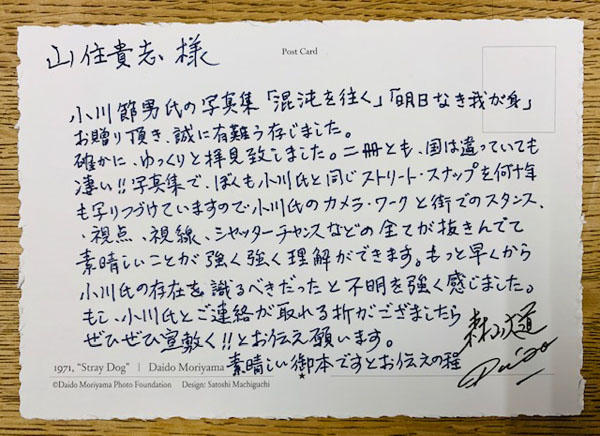 山住貴志 様
Post Card
小川節男氏の写真集「混沌を往く」「明日なき我が身」
お贈り頂き、誠に有難う存じました。
確かに、ゆっくりと拝見致しました。二冊とも、国は違っていても
凄い!!写真集で、ぼくも小川氏と同じストリート・スナップを何十年
も写りつづけていますので小川氏のカメラ・ワークと街でのスタンス、
・視点、視線、シャッターチャンスなどの全てが抜きんでて
素晴しいことが強く強く理解ができます。もっと早くから
小川氏の存在を識るべきだったと不明を強く感じました。
もし、小川氏とご連絡が取れる折がございましたら
ぜひぜひ宜敷く!!とお伝え願います。
森山大道
Daido
1971, "Stray Dog" | Daido Moriyama
素晴しい御本ですとお伝えの程
©Daido Moriyama Photo Foundation Design: Satoshi Machiguchi